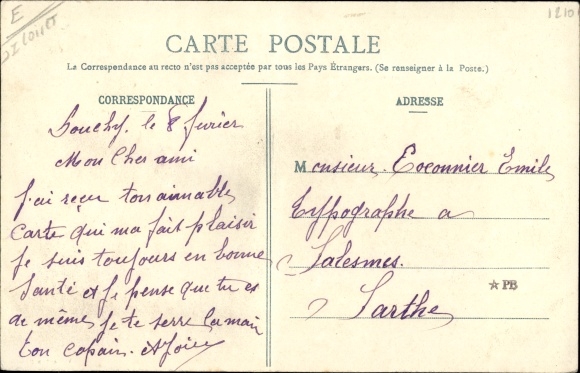 E
Loiret
1210
CARTE POSTALE
La Correspondance au recto n'est pas acceptée par tous les Pays Étrangers. (Se renseigner à la Poste.)
CORRESPONDANCE
Douchy. le 8 fevrier
Mon Cher ami
J'ai reçu ton aimable
Carte qui ma fait plaisir
je suis toujours en bonne
Santé et je pense que tu es
de même je te serre la main
Ton copain.
ADRESSE
Monsieur. Coconnier Emile
Typographe a
Salesmes.
Sarthe
PB